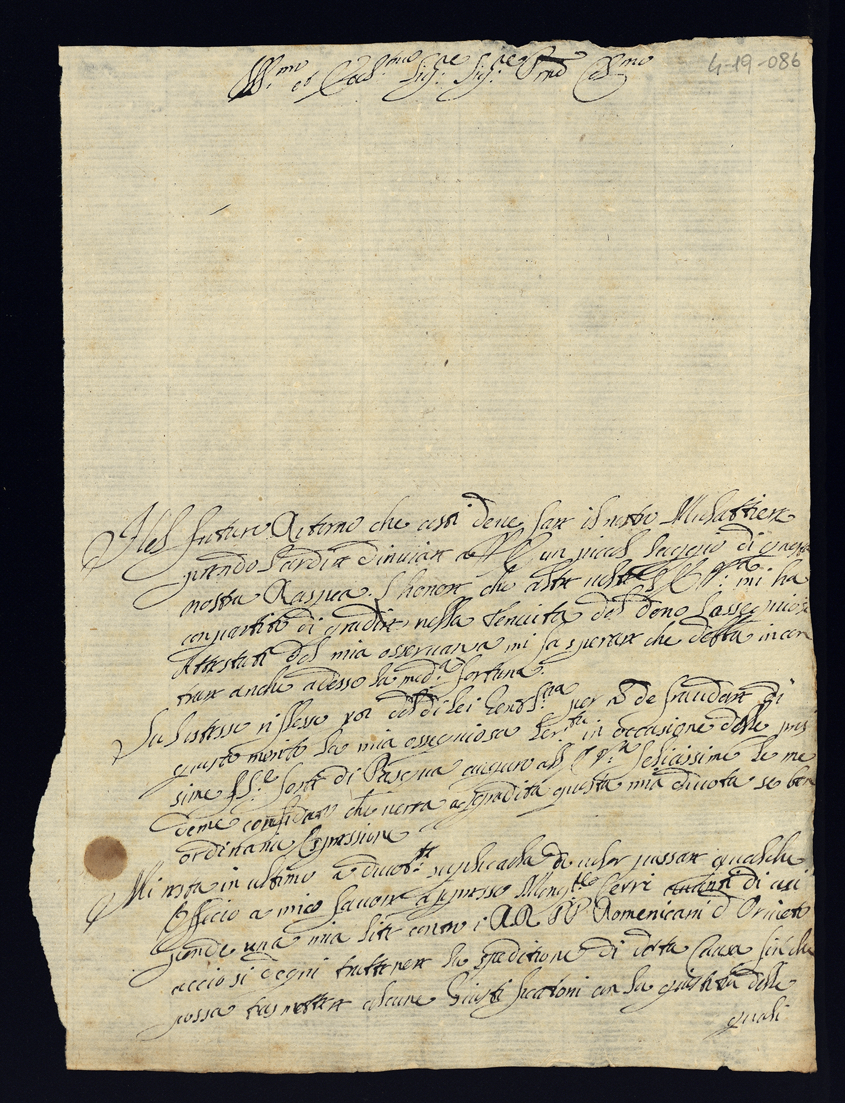 Ill.mo et Ecc.mo Sig.re Sig.re P.rone Col.mo
4-19-086
Nel futuro Ritorno che costì deve fare il nostro Mulattiere
prendo l'ardire d'inviare a V.E. un picciol saggio di questa
nostra Raspea. L'honore che altre volte V.E. mi ha
conpartito di gradire nella tenuità del dono l'ossequiosi
Attestati del mia osservanza mi fa sperare che debba incon
trare anche adesso la med.a fortuna.
Su l'istesso riflesso poi del di lei per no de fraudare di
questo merito la mia ossequiosa Ser.tù in occasione delle pros
sime S.te feste di Pasqua auguro all' E.V. felicissime le me
deme confidato che verrà agradita questa mia divota se ben
ordinaria Espressione
Mi resta in ultimo a supplicarla di voler passare qualche
Officio a mio favore appresso Mons.re Cerri avanti di cui
pende una mia lite contro i RR PP Domenicani d'Orvieto
acciò si degni trattenere la speditione di detta Causa finche
possa trasmettere alcune Giustificationi con la quantità delle
quali